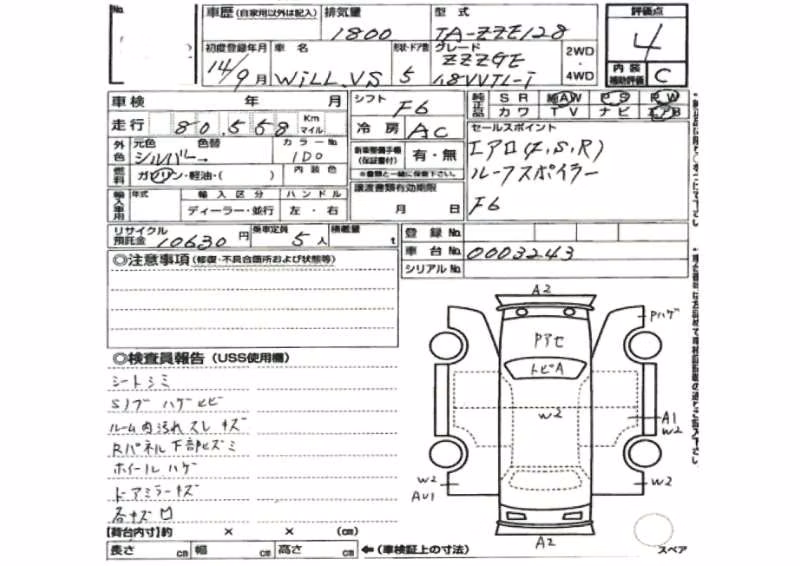 No.
車歴 (自家用以外は記入)
排気量 1800
型式 TA-ZZE128
評価点
4
内装補助評価 C
初度登録年月 14/9月
車名 WiLL.VS
形状・ドア数 5
グレード ZZZGE 1.8VVTL-i
2WD ・ 4WD
車検 年 月
シフト F6
純正品 SR 純AW PS PW
カワ TV ナビ エアB
走行 80,558 Km マイル
冷房 AC
セールスポイント
エアロ(F,S,R)
ルーフスポイラー
F6
外色 元色 色替 シルバー
カラーNo. 1D0
新車整備手帳(保証書付) 有・無
※書類と一緒に保管下さい。
燃料 ガソリン・軽油・( )
内装色
輸入車用 年式 輸入区分 ハンドル
ディーラー・並行 左・右
譲渡書類有効期限
月 日
リサイクル預託金 10630円
乗車定員 5人
積載量 t
登録No.
車台No. 0003243
シリアルNo.
◎注意事項 (修復・不具合箇所および状態等)
◎検査員報告 (USS使用欄)
シートシミ
Sノブ ハゲ ヒビ
ルーム内汚れ スレ キズ
Rパネル下部ヒズミ
ホイールハゲ
ドアミラーキズ
各キズ凹
A2
Pハゲ
Pアセ
トビA
W2
A1
W2
W2
AU1
W2
A2
スペア
【荷台内寸】約 × × (cm)
長さ cm 幅 cm 高さ cm ←(車検証上の寸法)